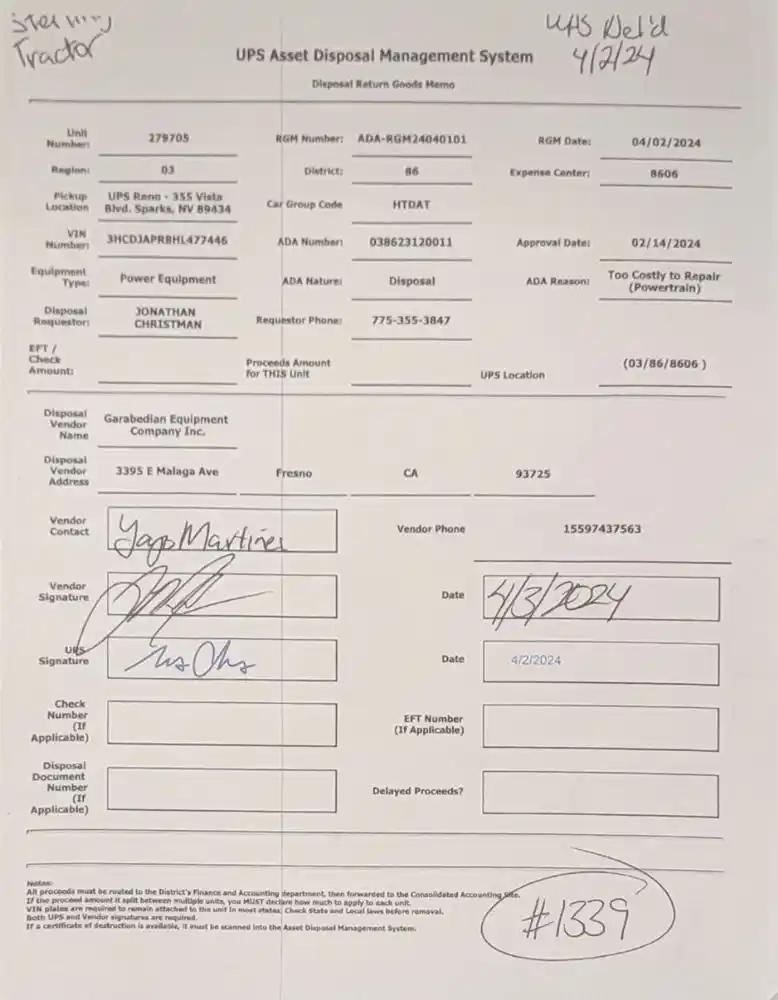 Tractor
UPS Asset Disposal Management System
4/2/24
Disposal Return Goods Memo
Unit Number: 279705 RGM Number: ADA-RGM24040101 RGM Date: 04/02/2024
Region: 03 District: 86 Expense Center: 8606
Pickup Location UPS Reno - 355 Vista Blvd. Sparks, NV 89434 Car Group Code HTDAT
VIN Number: 3HCDJAPRBHL477446 ADA Number: 038623120011 Approval Date: 02/14/2024
Equipment Type: Power Equipment ADA Nature: Disposal ADA Reason: Too Costly to Repair (Powertrain)
Disposal Requestor: JONATHAN CHRISTMAN Requestor Phone: 775-355-3847
EFT / Check Amount: Proceeds Amount for THIS Unit UPS Location (03/86/8606 )
Disposal Vendor Name Garabedian Equipment Company Inc.
Disposal Vendor Address 3395 E Malaga Ave Fresno CA 93725
Vendor Contact Martines Vendor Phone 15597437563
Vendor Signature Date 4/3/2024
UPS Signature Date 4/2/2024
Check Number (If Applicable) EFT Number (If Applicable)
Disposal Document Number (If Applicable) Delayed Proceeds?
Notes:
All proceeds must be routed to the District's Finance and Accounting department, then forwarded to the Consolidated Accounting Site.
If the proceed amount it split between multiple units, you MUST declare how much to apply to each unit.
VIN plates are required to remain attached to the unit in most states. Check State and Local laws before removal.
Both UPS and Vendor signatures are required.
If a certificate of destruction is available, it must be scanned into the Asset Disposal Management System.
#1339